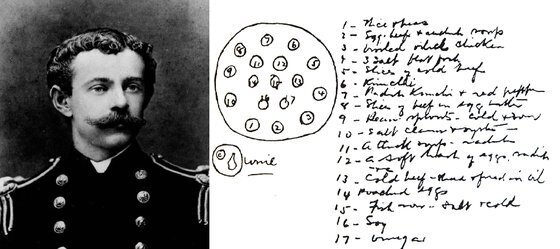 7
8 6
9 11 12 5
10 14 13 15 4
16 17
3
1 2
wine
1 - Rice & beans
2 - Egg, beef & radish soup
3 - whole chicken
4 - 3 salt pork
5 - Slices of cold beef
6 - Kimchi
7 - Radish Kimchi & red pepper
8 - Slices of beef in egg batter
9 - Bean sprouts - cold & sour
10 - Salt clams & oysters
11 - A thick soup - radish
12 - a soft hash of eggs, radish
13 - Cold beef - fried in oil
14 Poached eggs
15 - Fish roe - salt & cold
16 - Soy
17 - Vinegar